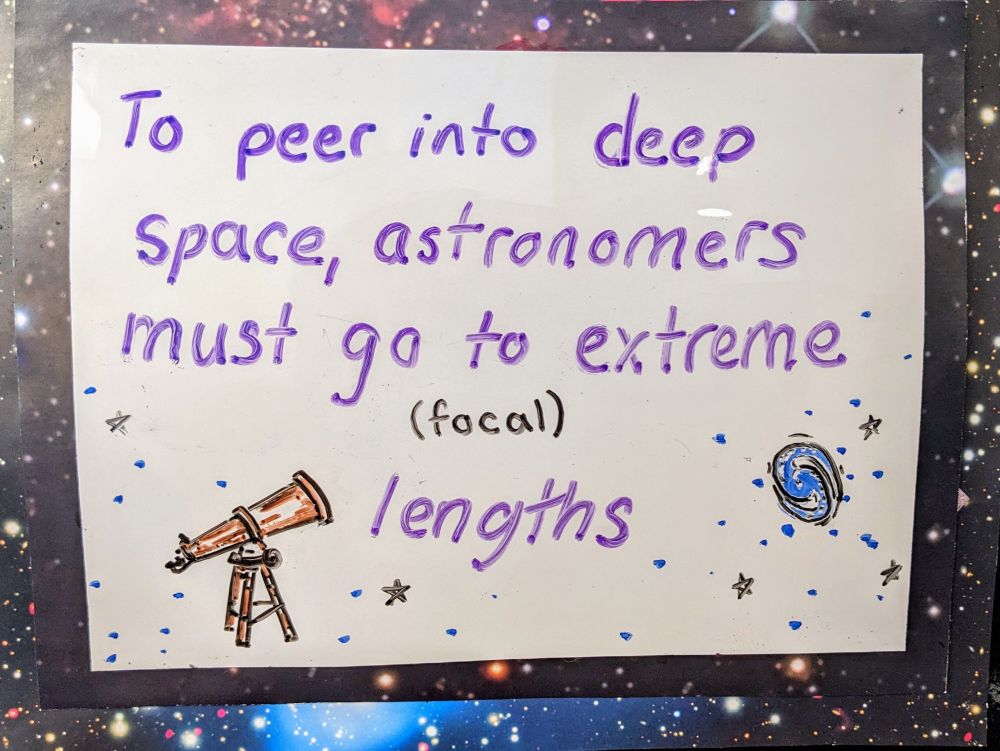 To peer into deep
space, astronomers
must go to extreme
(focal)
lengths